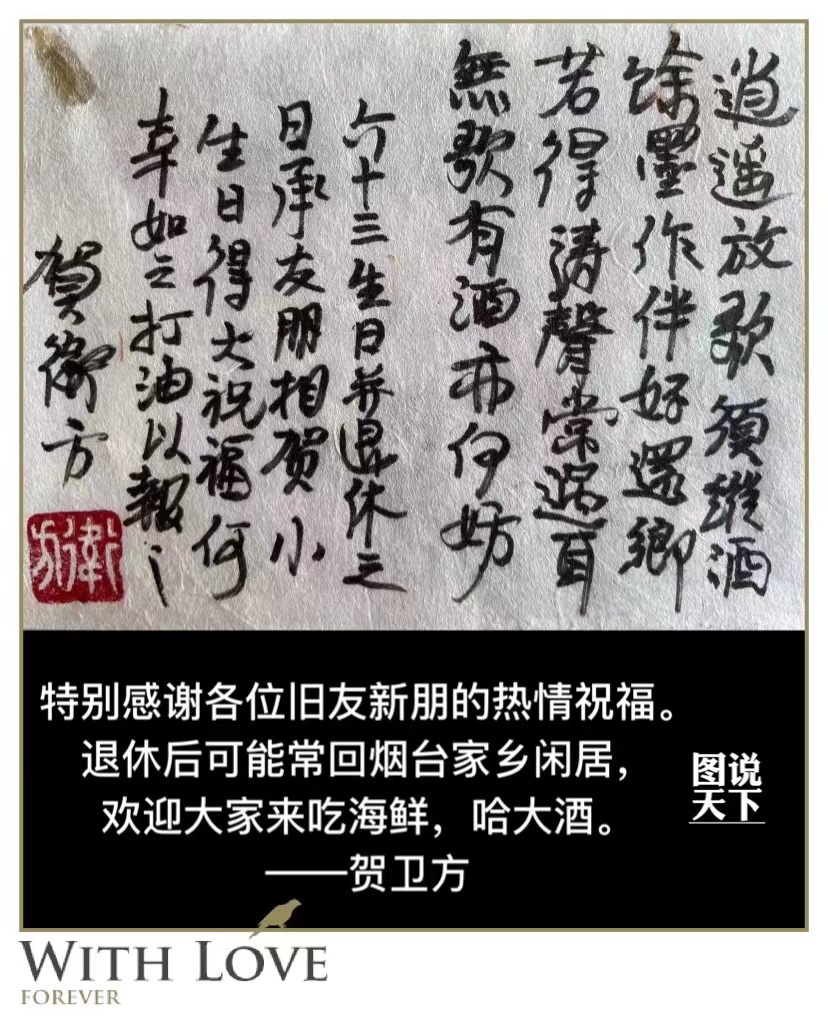 逍遥放歌須縱酒
馀墨作伴好還鄉
若得濤聲常過耳
無歌有酒亦何妨
六十三生日并退休之
日承友朋相贺小
生日得大祝福何
幸如之打油以報之
賀衛方
衛方
特别感谢各位旧友新朋的热情祝福。
退休后可能常回烟台家乡闲居，
欢迎大家来吃海鲜，哈大酒。
——贺卫方
图说
天下
WITH LOVE
FOREVER